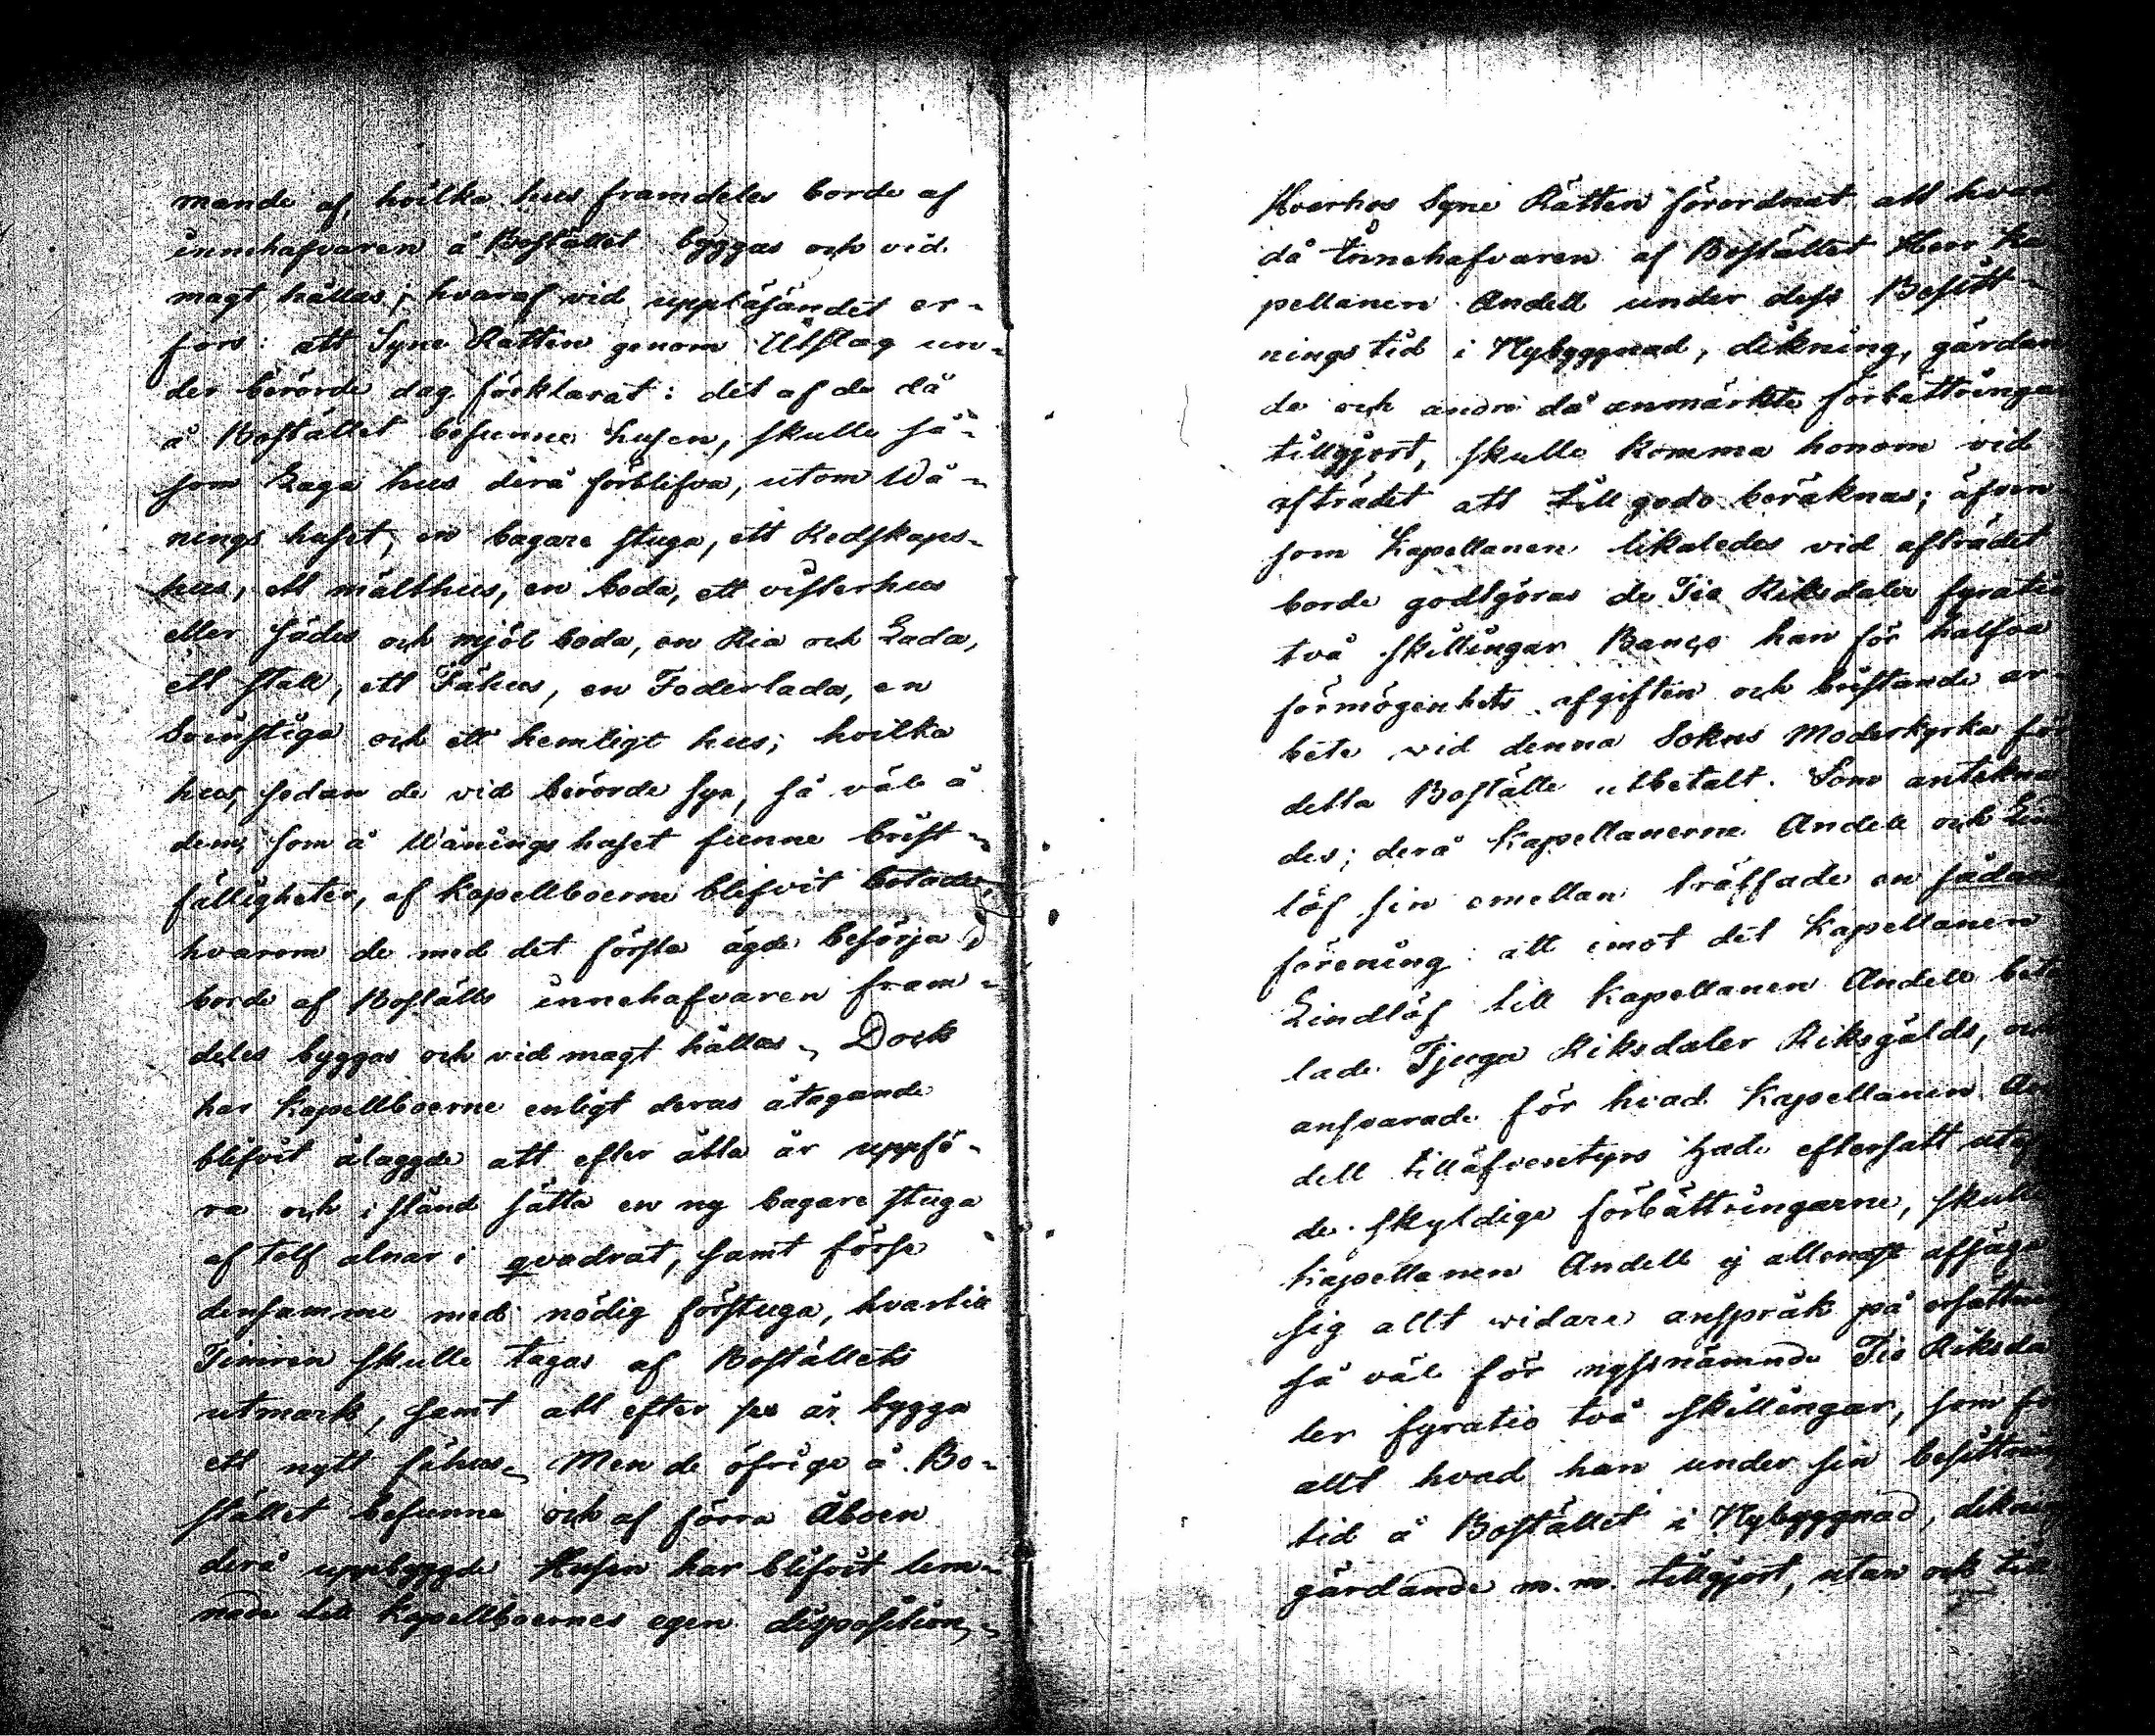 mande af, hvilka hus framdeles borde af
innehafvaren å Bostället byggas och vid
magt hållas; hvaraf vid uppläsandet er-
fors: att Syne Rätten genom Utslag un-
der berörde dag förklarat: det af de då
å Bostället befunne husen, skulle så-
som Laga hus derå förblifva, utom Wå-
nings huset, en bagare stuga, ett Redskaps-
hus, ett mälthus, en boda, ett visterhus
eller sädes och mjöl boda, en Ria och Lada,
ett stall, ett Fähus, en Foderlada, en
Svinstiga och ett hemligt hus; hvilka
hus, sedan de vid berörde syn, så väl å
dem, som å Wånings huset funne brist-
fälligheter, af kapellboerne blifvit botade,
hvarom de med det första ägde besörja,
borde af Boställs innehafvaren fram-
deles byggas och vid magt hållas. Dock
har Kapellboerne enligt deras åtagande
blifvit ålaggde att efter åtta år uppfö-
ra och i stånd sätta en ny bagare stuga
af tolf alnar i qvadrat, samt förse
densamme med nödig förstuga, hvartill
Timren skulle tagas af Boställets
utmark, samt att efter sex år bygga
ett nytt fähus. Men de öfrige å Bo-
stället befunne och af förra Åboen
derå uppbyggde Husen har blifvit lem-
nade till Kapellboernes egen disposition,
Hvarhos Syne Rätten förordnat att hvad
då Innehafvaren af Bostället Herr Ka
pellanen Andell under dess Besitt-
nings tid i Nybyggnad, dikning, gärdan
de och andre då anmärkte förbättringar
tillgjort, skulle komma honom vid
afträdet att till godo beräknas; äfven-
som Kapellanen likaledes vid afträdet
borde godtgöras de Tio Riksdaler fyratio
två skillingar Banco han för halfva
förmögenhets afgiften och bristande ar-
bete vid denna Sokns Moderkyrka för
detta Boställe utbetalt. Som antekna
des; derå Kapellanerne Andell och Lind
löf sin emellan träffade en sådan
förening: att imot det Kapellanen
Lindlöf till Kapellanen Andell beta
lade Tjugu Riksdaler Riksgälds, och
ansvarade för hvad Kapellanen An
dell tilläfventyrs hade eftersatt uti
de skyldige förbättringarne, skulle
Kapellanen Andell ej allenast afsäga
sig allt vidare anspråk på ersättning
så väl för nyssnämnde Tio Riksda
ler fyratio två skillingar, som för
allt hvad han under sin besittnings
tid å Bostället i Nybyggnad, dikning
gärdande m.m. tillgjort, utan och till